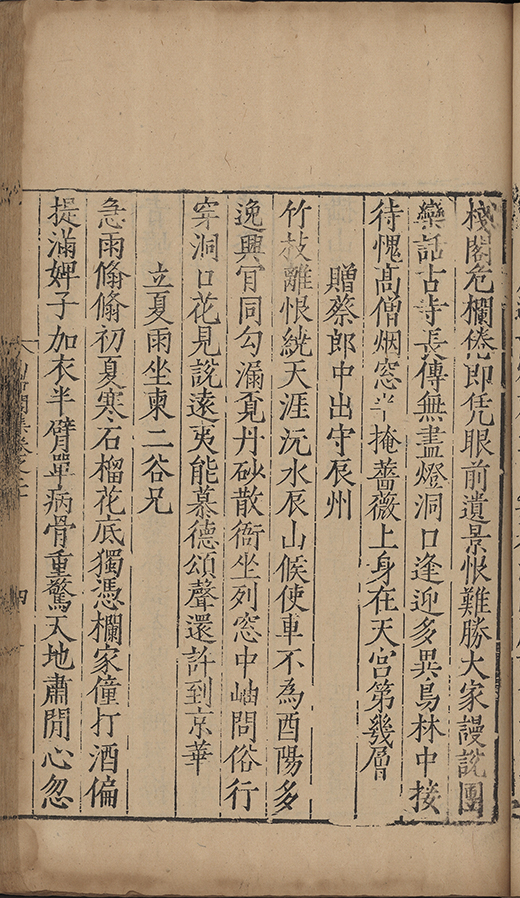 棧閣危欄倦即凭眼前遺景恨難勝大家謾說團
欒話古寺長傳無盡燈洞口逢迎多異鳥林中接
待愧高僧烟窓半掩薔薇上身在天宮第幾層
贈蔡郎中出守辰州
竹枝離恨繞天涯沅水辰山候使車不為酉陽多
逸興官同勾漏覓丹砂散衙坐列窓中岫問俗行
穿洞口花見說遠夷能慕德頌聲還許到京華
立夏雨坐柬二谷兄
急雨翛翛初夏寒石榴花底獨憑欄家僮打酒偏
提滿婢子加衣半臂單病骨重驚天地肅閒心忽
四